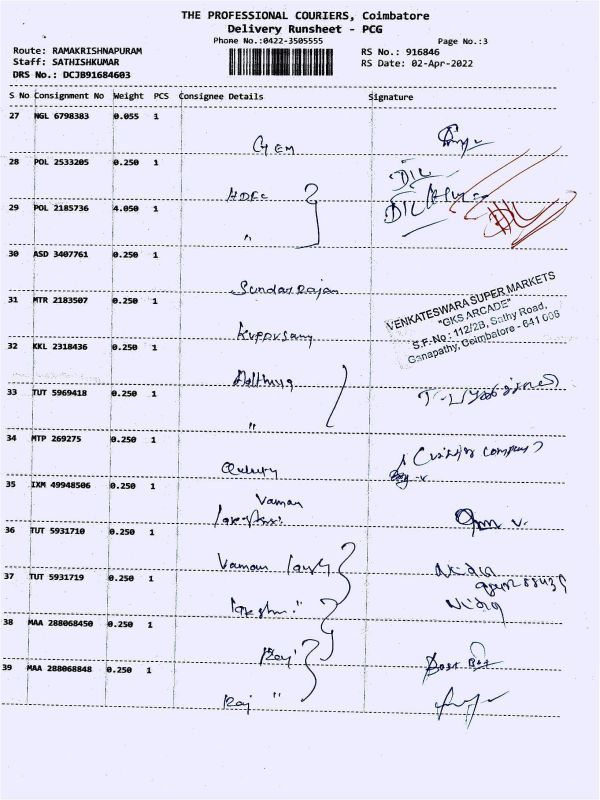 THE PROFESSIONAL COURIERS, Coimbatore
Delivery Runsheet - PCG
Phone No.:0422-3505555
Page No.:3
Route: RAMAKRISHNAPURAM
RS No.: 916846
Staff: SATHISHKUMAR
RS Date: 02-Apr-2022
DRS No.: DCJB91684603
S No Consignment No Weight PCS Consignee Details Signature
27 NGL 6798383 0.055 1
GEM
28 POL 2533205 0.250 1
DIL
HDFC
29 POL 2185736 4.050 1
DIL
DIL
"
30 ASD 3407761 0.250 1
Sundarrajan
VENKATESWARA SUPER MARKETS
"GKS ARCADE"
S.F-No : 112/2B, Sathy Road,
Ganapathy, Coimbatore - 641 006
31 MTR 2183507 0.250 1
32 KKL 2318436 0.250 1
33 TUT 5969418 0.250 1
"
34 MTP 269275 0.250 1
Quality
35 IXM 49948506 0.250 1
Vaman
36 TUT 5931710 0.250 1
Vaman
37 TUT 5931719 0.250 1
38 MAA 288068450 0.250 1
Raj
39 MAA 288068848 0.250 1
Raj "